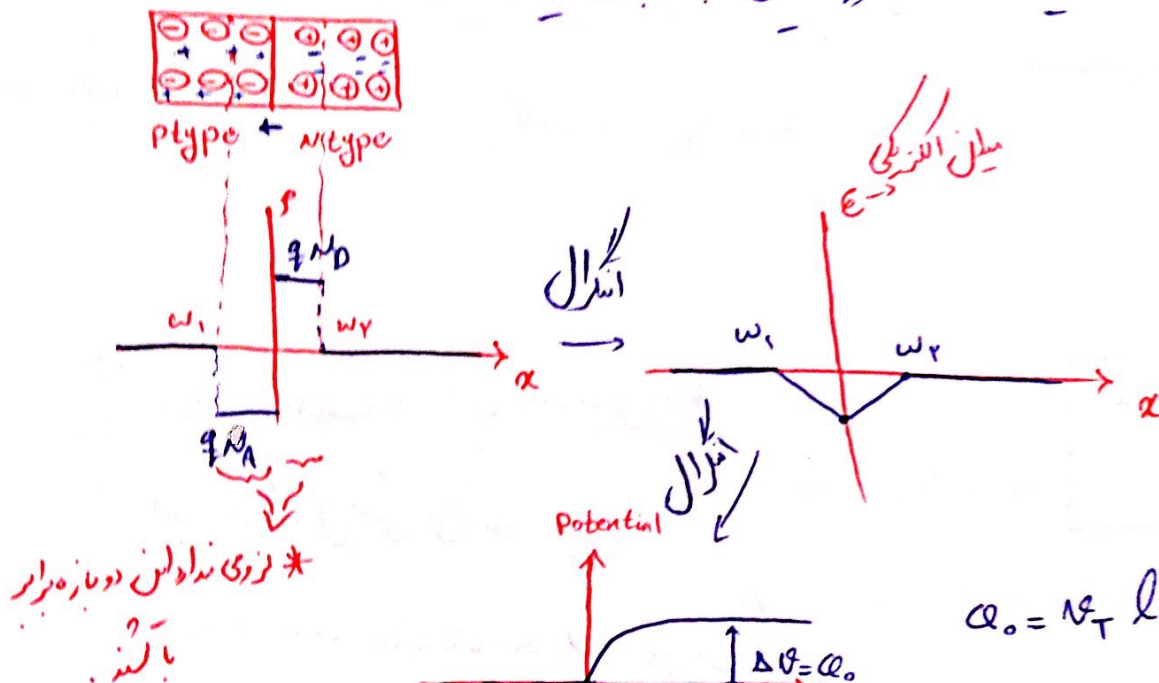 Ptype ← Ntype
ρ
q N_D
w₁
w₂
x
q N_A
انتگرال
میدان الکتریکی
ε
w₁
w₂
x
انتگرال
* لزومی ندارد این دو بازه برابر
باشند.
Potential
Δv = φ₀
φ₀ = V_T l